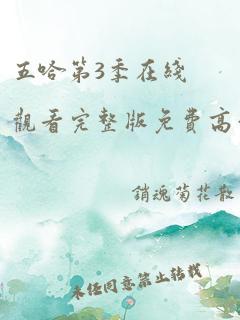 五哈第3季在线
觀看完整版免費高
銷魂菊花散
未经同意禁止转载